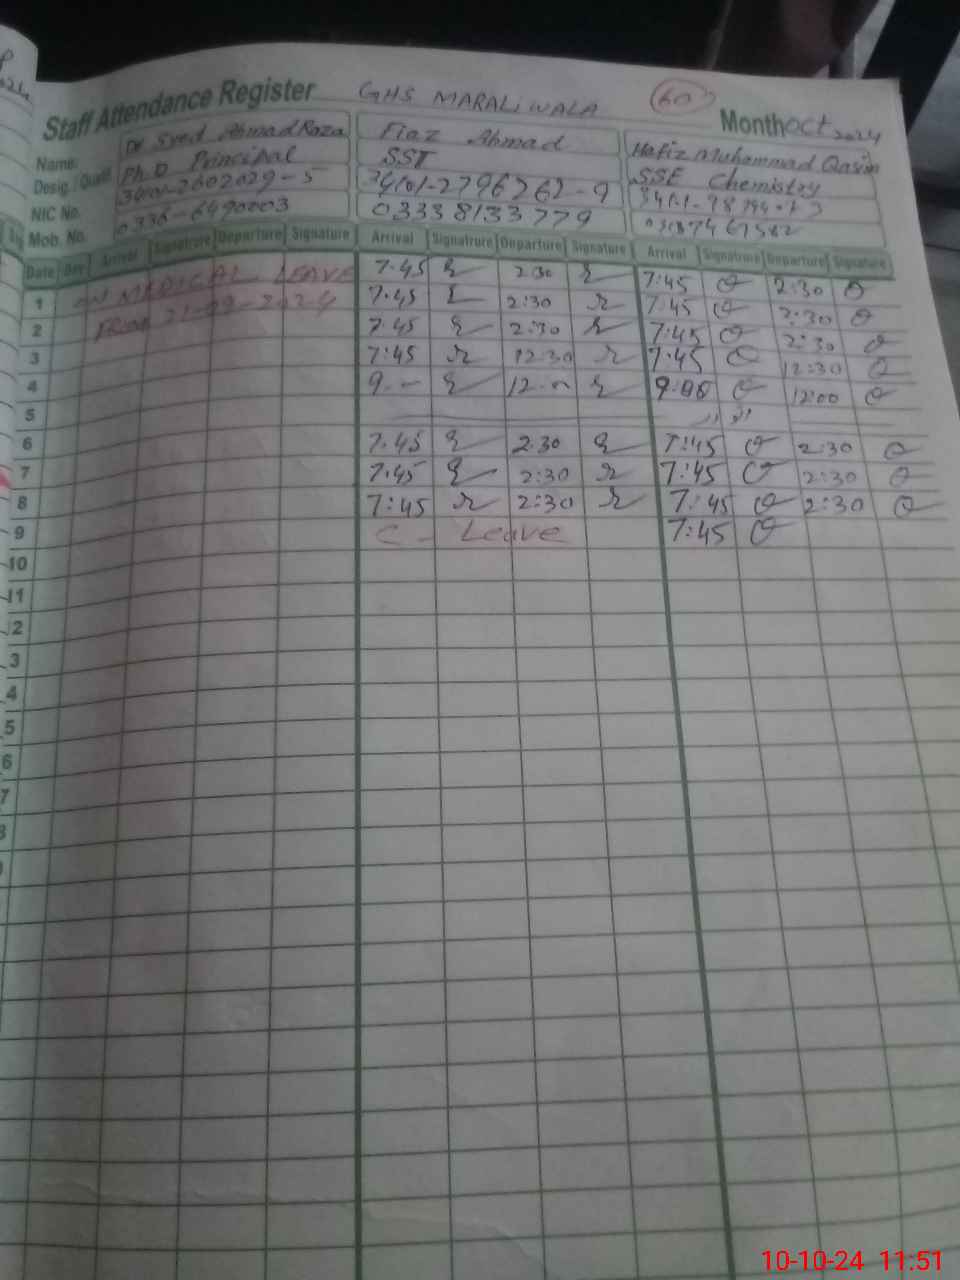 Staff Attendance Register GHS MARALiWALA 60 Month Oct 2024
Name: Dr Syed Ahmad Raza Fiaz Ahmad Hafiz Muhammad Qasim
Desig. / Quali Ph.D Principal SST SSE Chemistry
NIC No. 34101-2602029-5 34101-2796262-9
Mob. No. 0336-6490003 03338133779
Date Day Arrival Signatrure Departure Signature Arrival Signatrure Departure Signature Arrival Signatrure Departure Signature
1 ON MADICAL LEAVE 7:45 2:30 7:45 2:30
2 FROM 21-09-2024 7:45 2:30 7:45 2:30
3 7:45 2:30 7:45 2:30
4 7:45 12:30 7:45 12:30
5 9 - 12 - 9:00 12:00
6
7 7:45 2:30 7:45 2:30
8 7:45 2:30 7:45 2:30
9 7:45 2:30 7:45 2:30
10 C - Leave 7:45
11
10-10-24 11:51